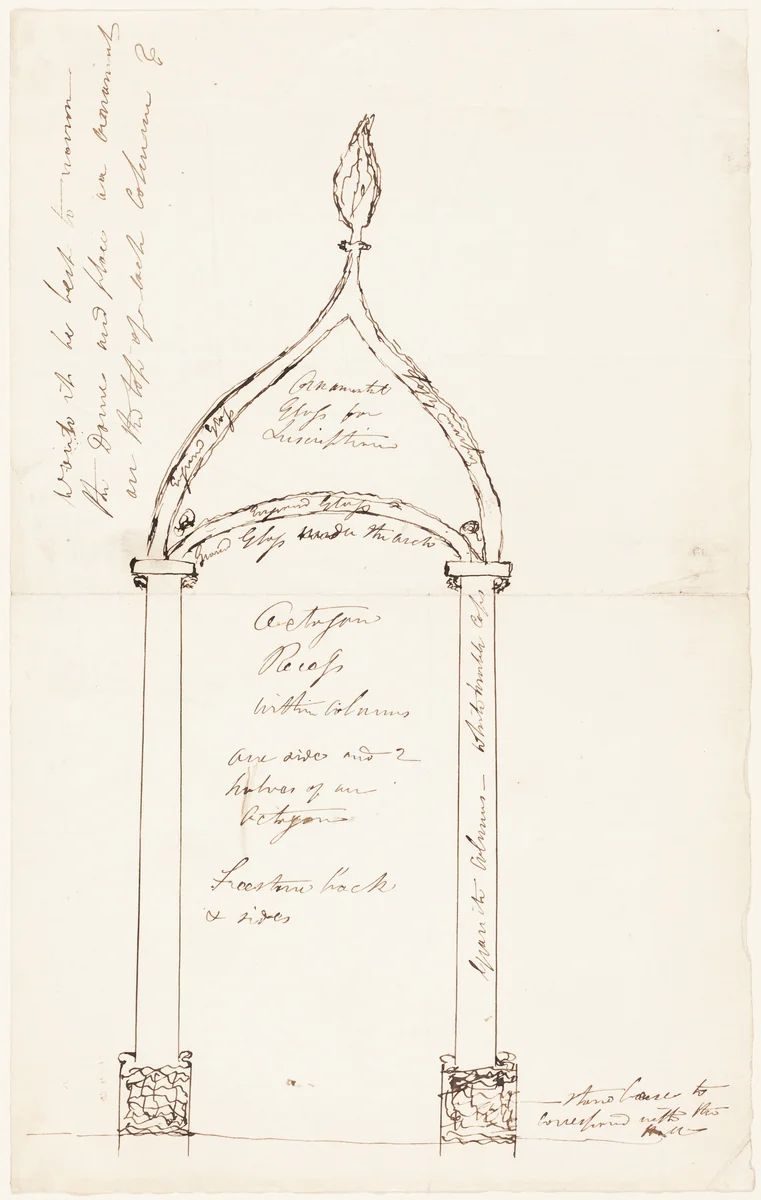 Would it be best to narrow
the Dome and place an ornament
on the top of each Column
Ornamental
Glass for
Inscription
Ground Glass
Ground Glass
Ground Glass under the arch
Octagon
Recess
within columns
one side and 2
halves of an
Octagon
Freestone back
& sides
Granite Columns — White marble Caps
Stone bases to
correspond with the